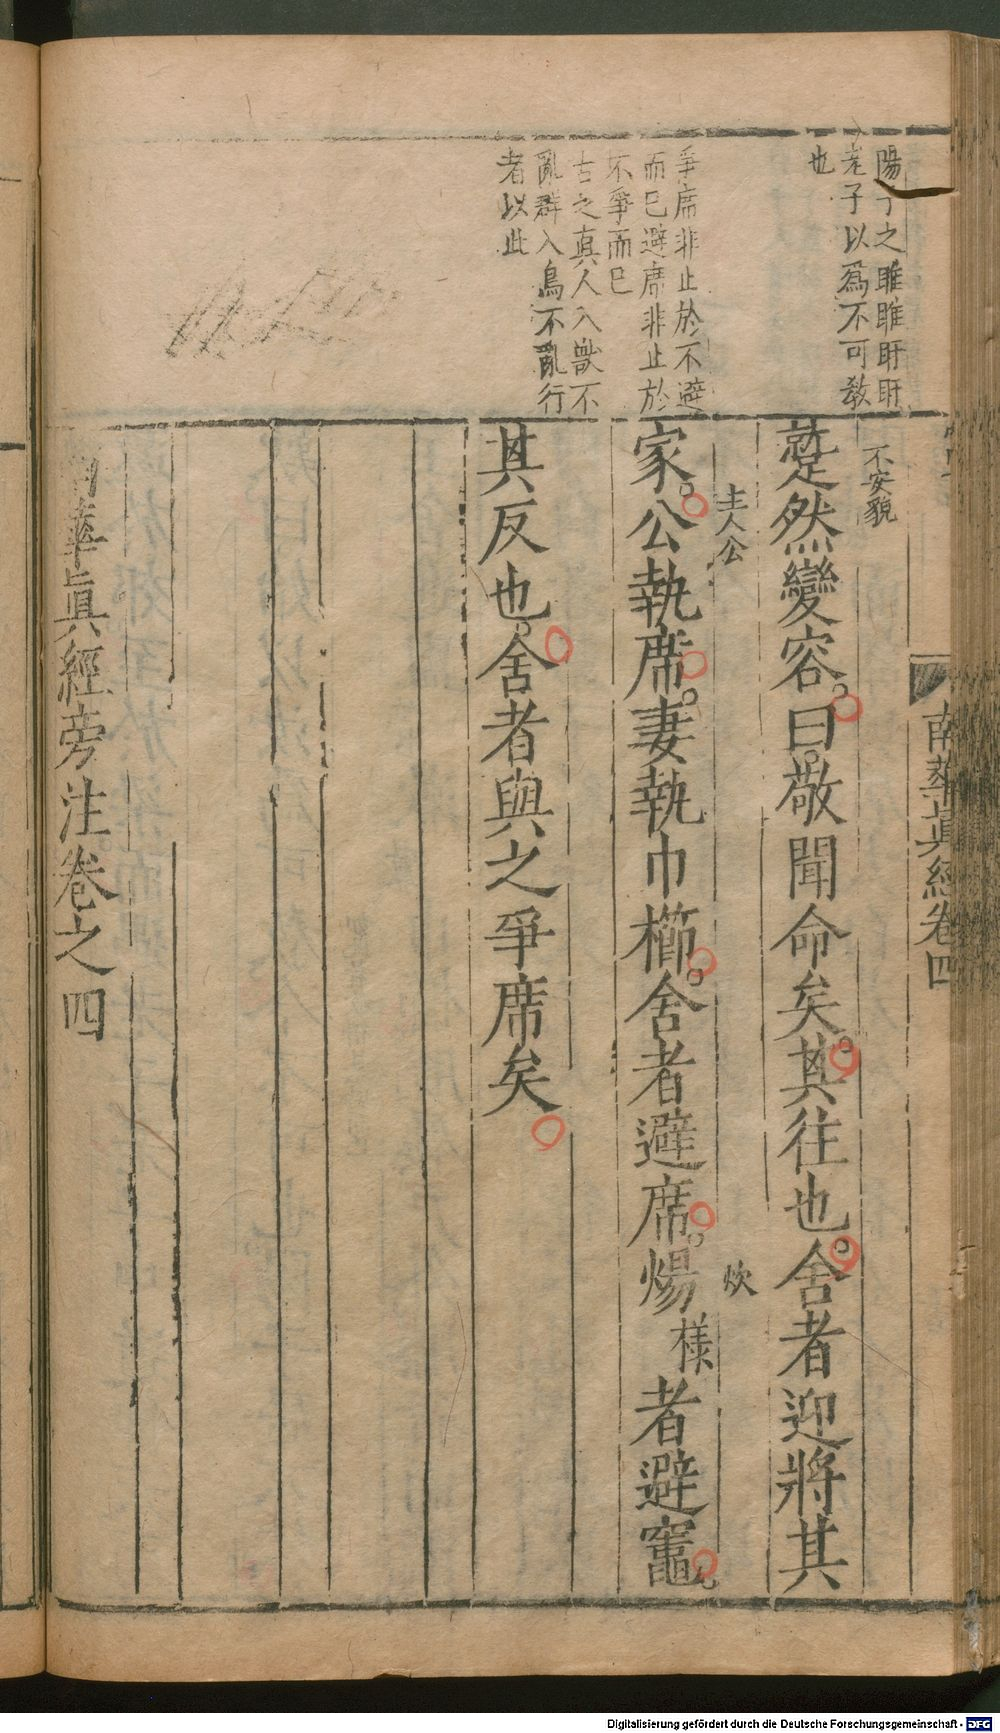 陽子之睢睢盱盱
老子以爲不可敎
也
爭席非止於不避
而已避席非止於
不爭而已
古之眞人入獸不
亂群入鳥不亂行
者以此
南華眞經卷四
不安貌
蹵然變容。曰。敬聞命矣。其往也。舍者迎將其
主人公
炊
家。公執席。妻執巾櫛。舍者避席。煬樣者避竈。
其反也。舍者與之爭席矣。
南華眞經旁注卷之四
Digitalisierung gefördert durch die Deutsche Forschungsgemeinschaft - DFG